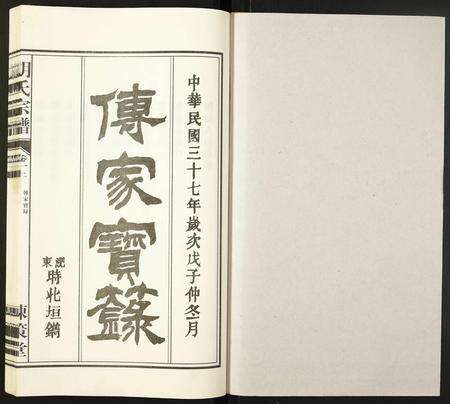 中華民國三十七年歲次戊子仲冬月
傳家寶籙
皖東
時兆垣鐫
胡氏宗譜
卷一
傳家寶錄
陳策堂